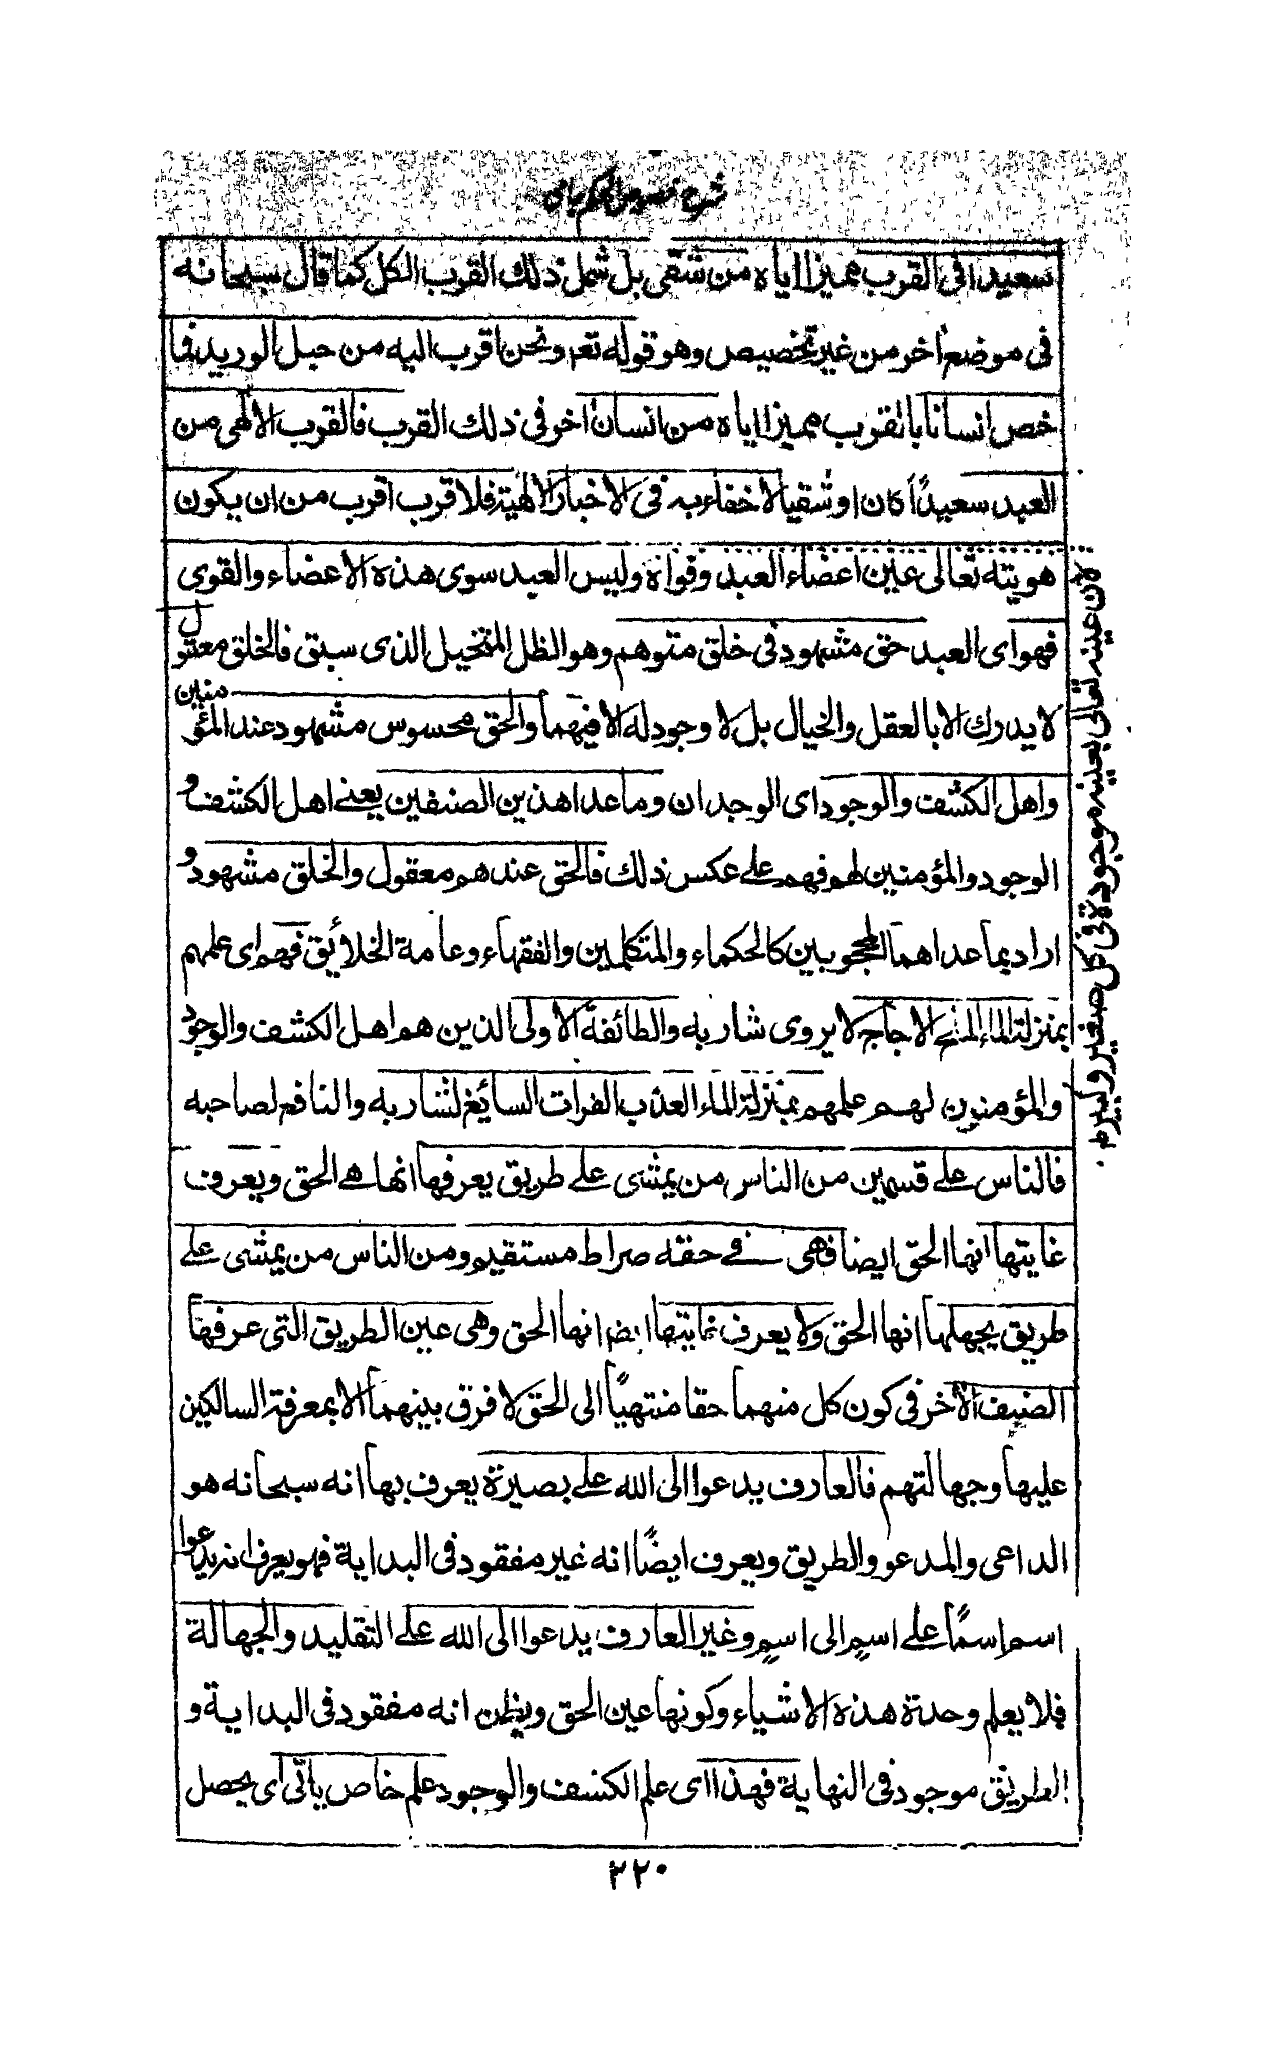 شرح فصوص الحكم جامي
سعيدا في القرب مميزا اياه من شقي بل شمل ذلك القرب الكل كما قال سبحانه
في موضع آخر من غير تخصيص وهو قوله تعم ونحن اقرب اليه من حبل الوريد فما
خص انسانا بالقرب مميزا اياه من انسان آخر في ذلك القرب فالقرب الالٰهي من
العبد سعيدًا كان او شقيا لا خفاء به في الاخبار الالٰهية فلا قرب اقرب من ان يكون
هويته تعالى عين اعضاء العبد وقواه وليس العبد سوى هذه الاعضاء والقوى
فهو اى العبد حق مشهود في خلق متوهم وهو الظل المتخيل الذى سبق فالخلق معقول
لا يدرك الا بالعقل والخيال بل لا وجود له الا فيهما والحق محسوس مشهود عند المؤمنين
واهل الكشف والوجود اى الوجدان وما عدا هذين الصنفين يعنے اهل الكشف و
الوجود والمؤمنين لهم فهم علے عكس ذلك فالحق عندهم معقول والخلق مشهود و
اراد بما عداهما المحجوبين كالحكماء والمتكلمين والفقهاء وعامة الخلائق فهم اى علمهم
بمنزلة الماء الملح الاجاج لا يروى شاربه والطائفة الاولى الذين هم اهل الكشف والوجود
والمؤمنين لهم علمهم بمنزلة الماء العذب الفرات السائغ لشاربه والنافع لصاحبه
فالناس علے قسمين من الناس من يمشى علے طريق يعرفها انها هے الحق ويعرف
غايتها انها الحق ايضا فهى فے حقه صراط مستقيم ومن الناس من يمشى علے
طريق يجهلها انها الحق ولا يعرف غايتها ايضا انها الحق وهى عين الطريق التى عرفها
الصنف الآخر في كون كل منهما حقا منتهيًا الى الحق لا فرق بينهما الا بمعرفة السالكين
عليها وجهالتهم فالعارف يدعوا الى الله علے بصيرة يعرف بها انه سبحانه هو
الداعى والمدعو والطريق ويعرف ايضًا انه غير مفقود في البداية فهو يعرف انه يدعوا
اسم اسمًا علے اسمٍ الى اسمٍ وغير العارف يدعوا الى الله علے التقليد والجهالة
فلا يعلم وحدة هذه الاشياء وكونها عين الحق ويظن انه مفقود في البداية و
الطريق موجود في النهاية فهذا اى علم الكشف والوجود علم خاص ياتى اى يحصل
لان عينه تعالى بعينه موجودة في كل صغير وكبير ط
٢٢٠